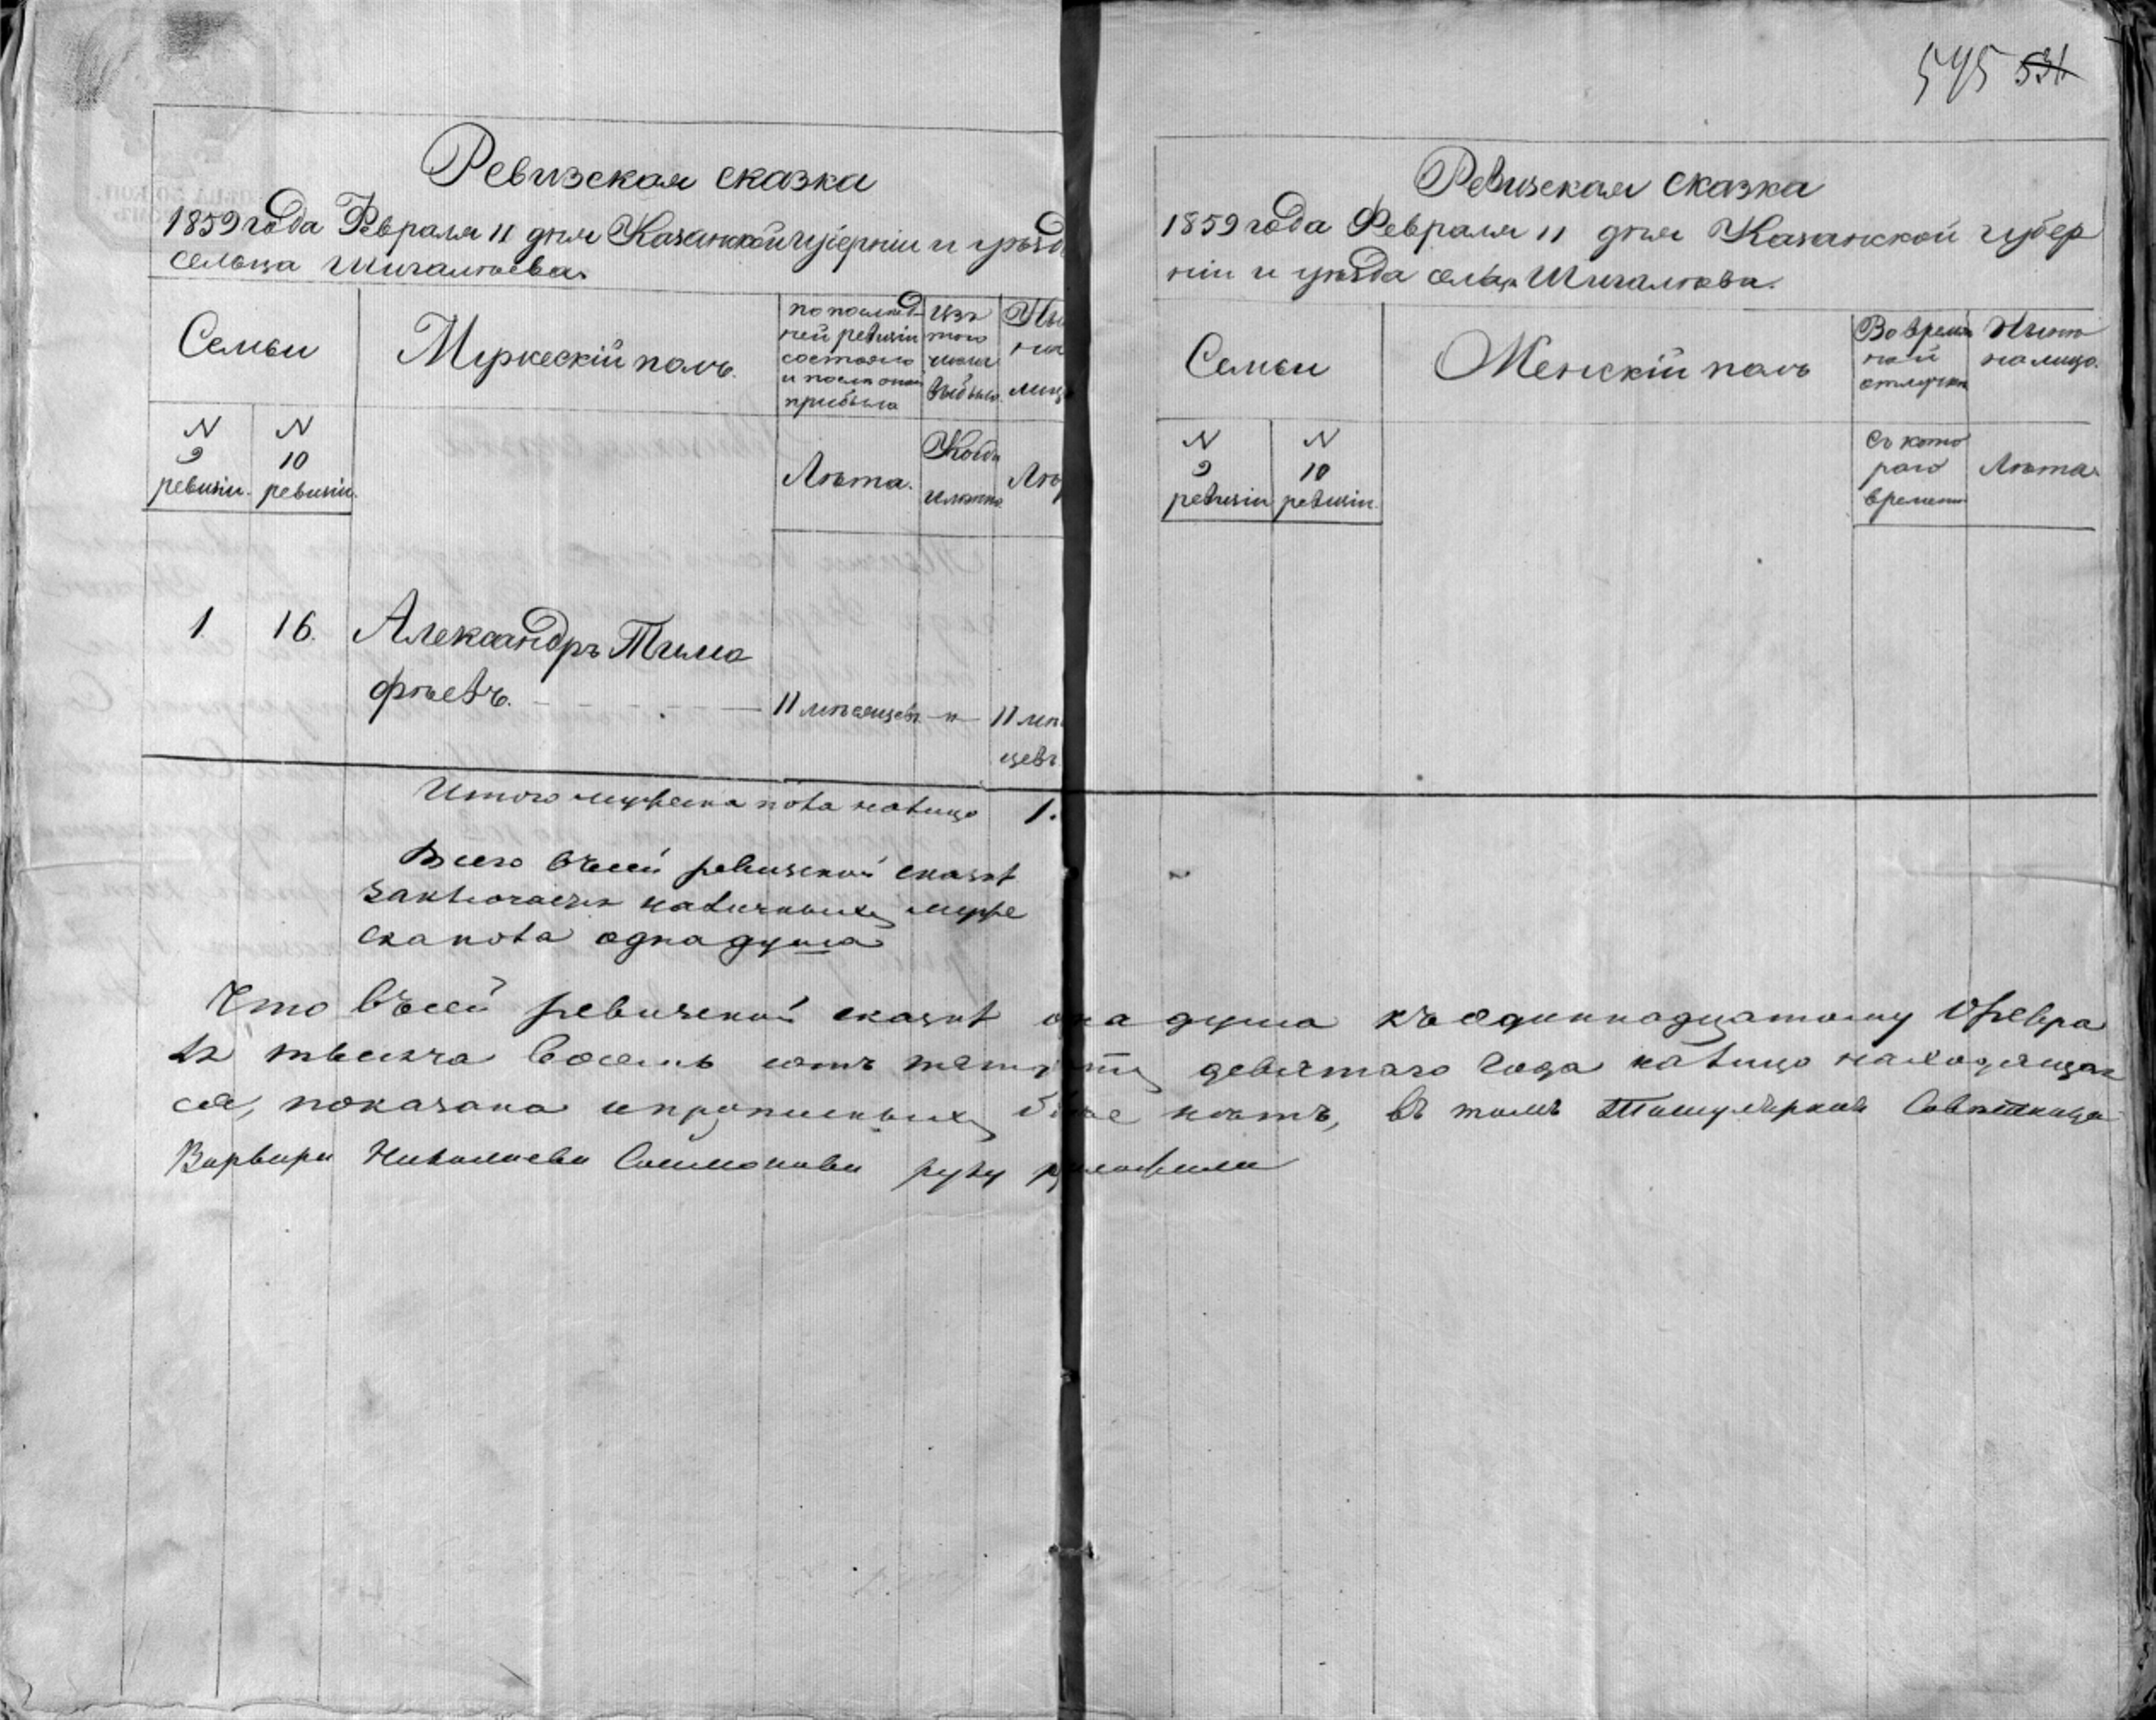 545 531
Ревизская сказка
1859 года Февраля 11 дня Казанской губерніи и уѣзда
сельца Шигалѣева.
Семьи
Мужескій полъ.
по послѣд
ней ревизіи
состояло
и послѣ оной
прибыло
Изъ
того
числа
выбыло.
Ны
нѣ на
лицо
N
9
ревизіи.
N
10
ревизіи.
Лѣта.
Когда
имянно
Лѣт
1 16. Александръ Тимо
фѣевъ. 11 мѣсяцевъ - „ - 11 мѣ
цевъ
Итого мужеска пола налицо 1.
Всего въ сей ревизской сказкѣ
заключается наличныхъ муже
ска пола одна душа
Ревизская сказка
1859 года Февраля 11 дня Казанской губер
ніи и уѣзда сельца Шигалѣева.
Семьи
Женскій полъ
Во времен
ной
отлучкѣ
Нынѣ
налицо.
N
9
ревизіи
N
10
ревизіи.
Съ кото
раго
времени
Лѣта.
Что въ сей ревизской сказкѣ одна душа къ одиннадцатому Февра
ля тысяча восемь сотъ пятьдесятъ девятаго года налицо находящая
ся, показана и прописныхъ болѣе нѣтъ, въ томъ Титулярная Совѣтница
Варвара Николаева Соимонова руку приложила